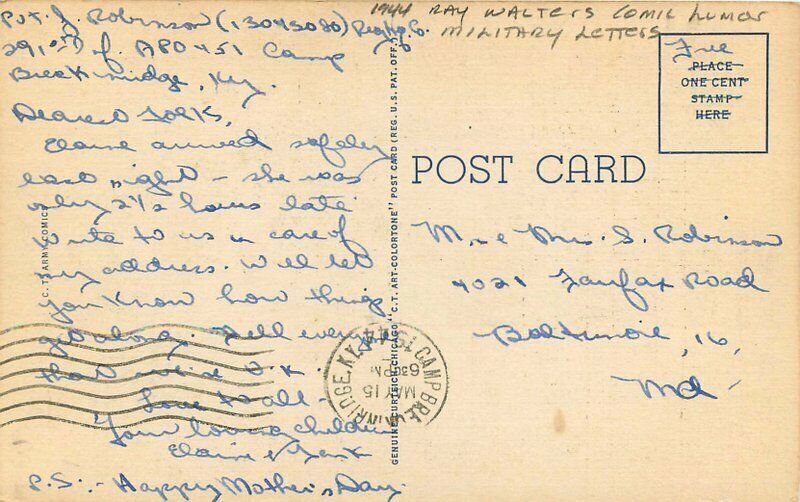 Pvt. J. Robinson (13045080)
291 Inf. APO 451 Camp
Breckinridge, Ky.
Dearest Folks,
Elaine arrived safely
last night - she was
only 2½ hours late
Write to us in care of
my address. We'll let
you know how things
get along. Tell everyone
that we're O.K.
Love to all -
Your loving children
Elaine &
P.S. - Happy Mother's Day.
C.T. ARMY COMICS
GENUINE CURTEICH-CHICAGO "C.T. ART-COLORTONE" POST CARD (REG. U.S. PAT. OFF.)
1944 RAY WALTERS COMIC HUMOR
MILITARY LETTERS
Free
PLACE
ONE CENT
STAMP
HERE
POST CARD
Mr. & Mrs. S. Robinson
4021 Fairfax Road
Baltimore, 16,
Md.
CAMP BRECKINRIDGE, KY.
MAY 15
630 PM
1944